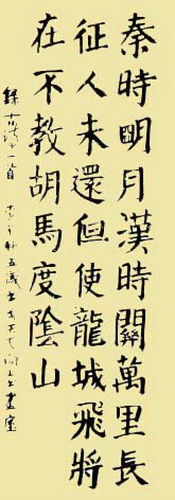 秦時明月漢時關萬里長
征人未還但使龍城飛將
在不教胡馬度陰山
錄古詩一首